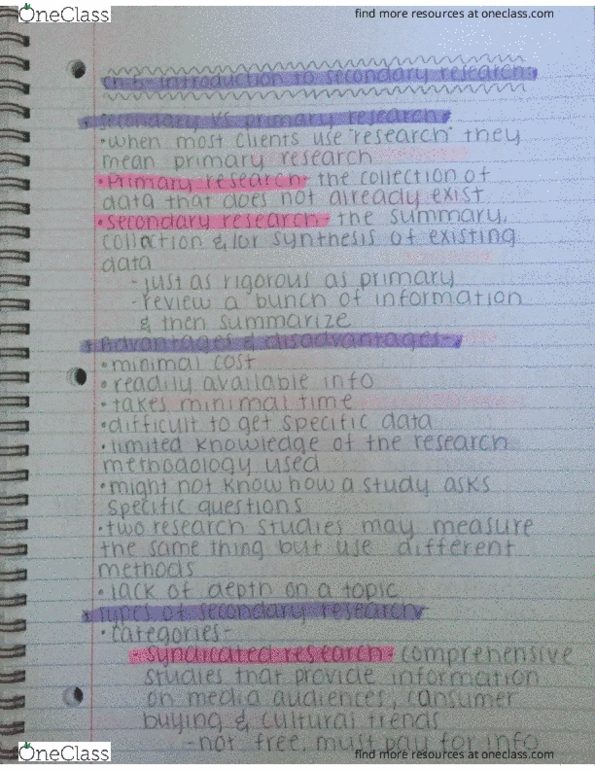 OneClass
find more resources at oneclass.com
Ch 5- Introduction to secondary research:
secondary vs primary research
• when most clients use "research" they
mean primary research
• Primary research- the collection of
data that does not already exist
• secondary research- the summary,
collection &/or synthesis of existing
data
- just as rigorous as primary
- review a bunch of information
& then summarize
Advantages & disadvantages-
• minimal cost
• readily available info
• takes minimal time
• difficult to get specific data
• limited knowledge of the research
methodology used
• might not know how a study asks
specific questions
• two research studies may measure
the same thing but use different
methods
• lack of depth on a topic
Types of secondary research
• categories-
- syndicated research- comprehensive
studies that provide information
on media audiences, consumer
buying & cultural trends
- not free, must pay for info
OneClass
find more resources at oneclass.com